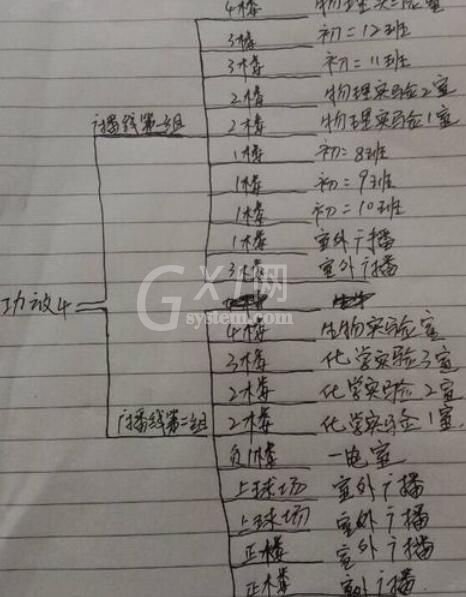 4楼 物理实验室
3楼 初二12班
3楼 初二11班
2楼 物理实验2室
广播线第一组 2楼 物理实验1室
1楼 初二8班
1楼 初二9班
1楼 初二10班
1楼 室外广播
3楼 室外广播
功放4
GX1网
system.com
4楼 生物实验室
3楼 化学实验3室
2楼 化学实验2室
广播线第二组 2楼 化学实验1室
负1楼 一电室
上球场 室外广播
上球场 室外广播
正楼 室外广播
正楼 室外广播